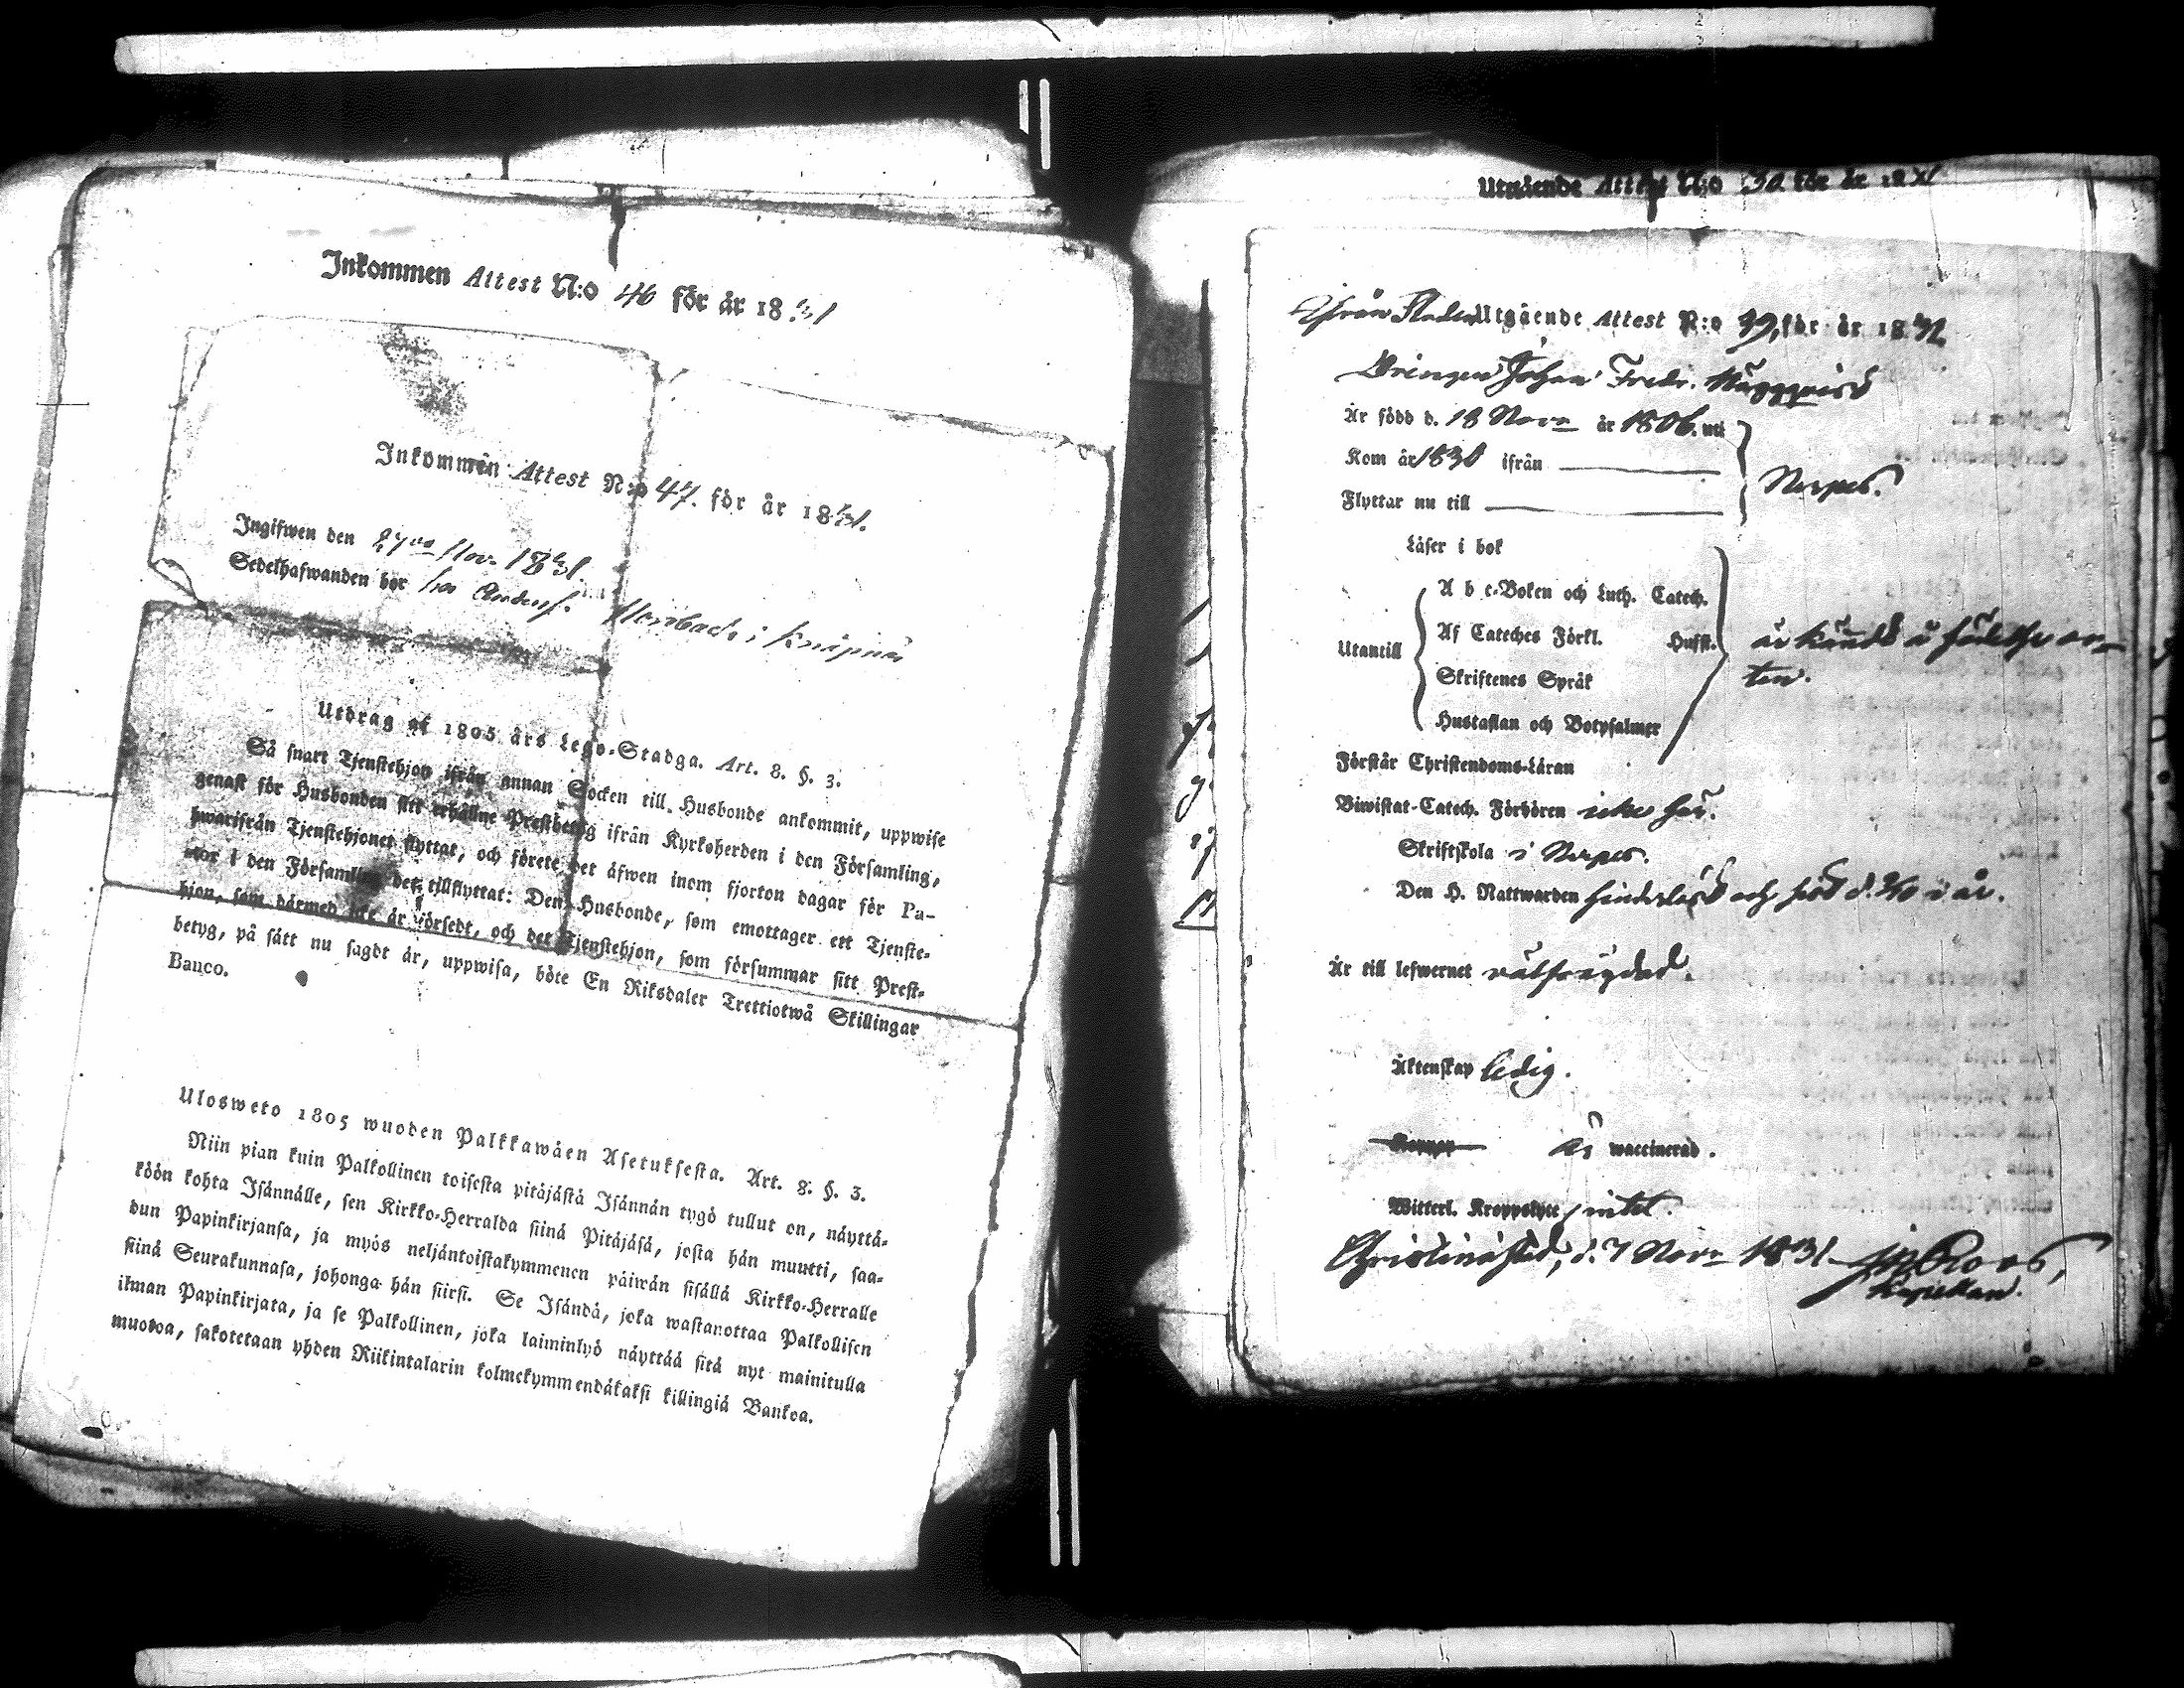 Inkommen Attest N:o 46 för år 1831
Inkommen Attest N:o 47. för år 1831.
Ingifwen den 27 Nov. 1831.
Sedelhafwanden bor hos i
Utdrag af 1805 års Lego-Stadga. Art. 8. §. 3.
Så snart Tjenstehjon ifrån annan Socken till Husbonde ankommit, uppwise
genast för Husbonden sitt erhållne Prestbetyg ifrån Kyrkoherden i den Församling,
hwarifrån Tjenstehjonet flyttat, och förete det äfwen inom fjorton dagar för Pa-
stor i den Församling det tillflyttat: Den Husbonde, som emottager ett Tjenste-
hjon, som därmed icke är försedt, och det Tjenstehjon, som försummar sitt Prest-
betyg, på sätt nu sagdt är, uppwisa, böte En Riksdaler Trettiotwå Skillingar
Banco.
Ulosweto 1805 wuoden Palkkawäen Asetuksesta. Art. 8. §. 3.
Niin pian kuin Palkollinen toisesta pitäjästä Isännän tygö tullut on, näyttä-
köön kohta Isännälle, sen Kirkko-Herralda siinä Pitäjäsä, josta hän muutti, saa-
dun Papinkirjansa, ja myös neljäntoistakymmenen päiwän sisällä Kirkko-Herralle
siinä Seurakunnasa, johonga hän siirsi. Se Isändä, joka wastanottaa Palkollisen
ilman Papinkirjata, ja se Palkollinen, joka laiminlyö näyttää sitä nyt mainitulla
muotoa, sakotetaan yhden Riikintalarin kolmekymmendäkaksi killingiä Bankoa.
Utgående Attest N:o 30 för år 1831
Ifrån Staden Utgående Attest N:o 39, för år 1831.
Drängen Johan Fredr. Häggqvist
Är född d. 18 Nov. år 1806. uti
Kom år 1830 ifrån
Flyttar nu till
Nerpes.
Läser i bok
Utantill
A b c-Boken och Luth. Catech.
Af Cateches Förkl. Hufst.
Skriftenes Språk
Hustaflan och Botpsalmer
är kändt å födelse or-
ten.
Förstår Christendoms-Läran
Biwistat-Catech. Förhören icke här.
Skriftskola i Nerpes.
Den H. Nattwarden hinderlöst och sist d. 2/10 i år.
Är till lefwernet rättsinnad.
Äktenskap ledig.
Koppor är waccinerad.
Witterl. Kroppslyte, intet.
Christinæstad, d. 7 Nov. 1831 Roos,
Kapellan.